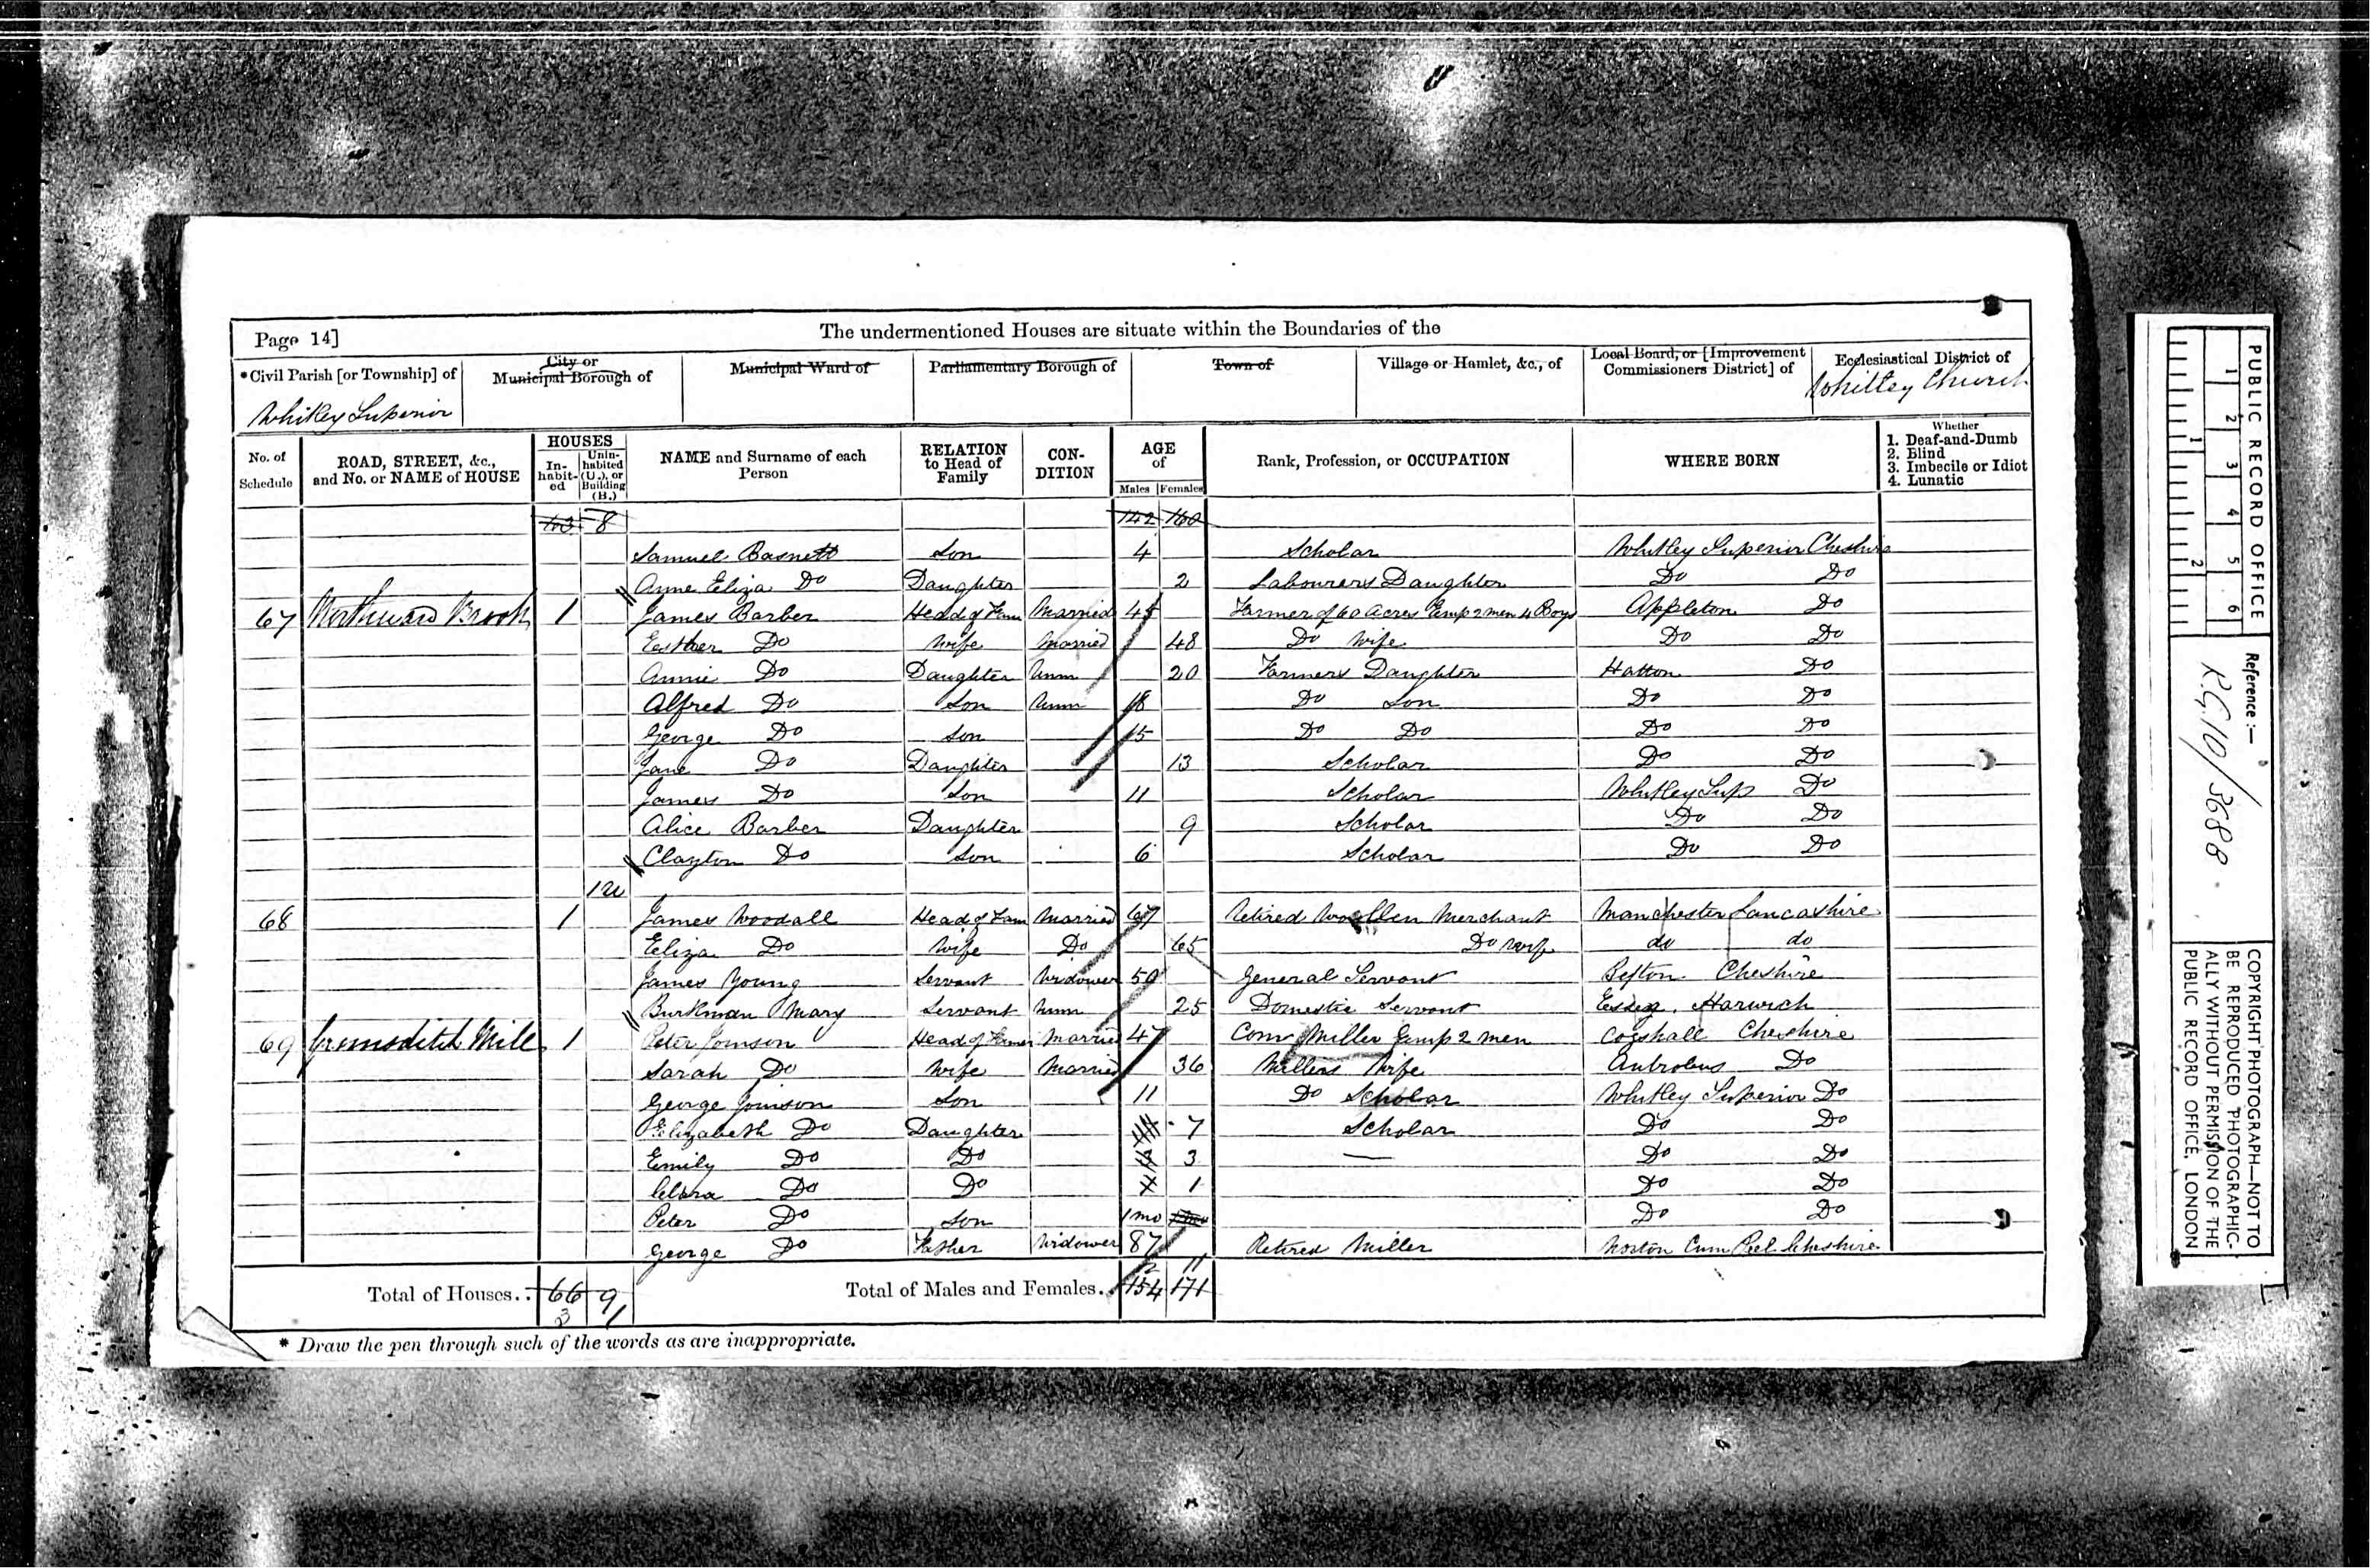 Page 14]
The undermentioned Houses are situate within the Boundaries of the
*Civil Parish [or Township] of
City or Municipal Borough of
Municipal Ward of
Parliamentary Borough of
Town of
Village or Hamlet, &c., of
Local Board, or [Improvement Commissioners District] of
Ecclesiastical District of
Whitley Superior
Whitley Church
No. of Schedule
ROAD, STREET, &c., and No. or NAME of HOUSE
HOUSES
In-habit-ed
Unin-habited (U.), or Building (B.)
NAME and Surname of each Person
RELATION to Head of Family
CON-DITION
AGE of
Males Females
Rank, Profession, or OCCUPATION
WHERE BORN
Whether
1. Deaf-and-Dumb
2. Blind
3. Imbecile or Idiot
4. Lunatic
8 142 160
Samuel Basnett Son 4 Scholar Whitley Superior Cheshire
Anne Eliza Do Daughter 2 Labourers Daughter Do Do
67 Brook 1 James Barber Head of Fam Married 45 Farmer of 60 Acres Emp 2 men 4 Boys Appleton Do
Esther Do Wife Married 48 Do Wife Do Do
Annie Do Daughter Unm 20 Farmers Daughter Hatton Do
Alfred Do Son Unm 18 Do Son Do Do
George Do Son 15 Do Do Do Do
Jane Do Daughter 13 Scholar Do Do
James Do Son 11 Scholar Whitley Sup Do
Alice Barber Daughter 9 Scholar Do Do
Clayton Do Son 6 Scholar Do Do
1U
68 1 James Woodall Head of Fam Married 67 Retired Woollen Merchant Manchester Lancashire
Eliza Do Wife Do 65 Do Wife do do
James Young Servant Widower 50 General Servant Cheshire
Burkman Mary Servant Unm 25 Domestic Servant Essex. Harwich
69 Mill 1 Peter Johnson Married 47 Corn Miller Emp 2 men Cogshall Cheshire
Sarah Do Wife Married 36 Millers Wife Antrobus Do
George Johnson Son 11 Do Scholar Whitley Superior Do
Elizabeth Do Daughter 7 Scholar Do Do
Emily Do Do 3 — Do Do
Clara Do Do 1 Do Do
Peter Do Son 1 mo Do Do
George Do Father Widower 87 Retired Miller Norton Cheshire
12 11
Total of Houses.. 66 9 Total of Males and Females.. 154 171
3 1
* Draw the pen through such of the words as are inappropriate.
PUBLIC RECORD OFFICE
1 2 3 4 5 6
1 2
Reference :—
R.G. 10/3688
COPYRIGHT PHOTOGRAPH—NOT TO
BE REPRODUCED PHOTOGRAPHIC-
ALLY WITHOUT PERMISSION OF THE
PUBLIC RECORD OFFICE, LONDON